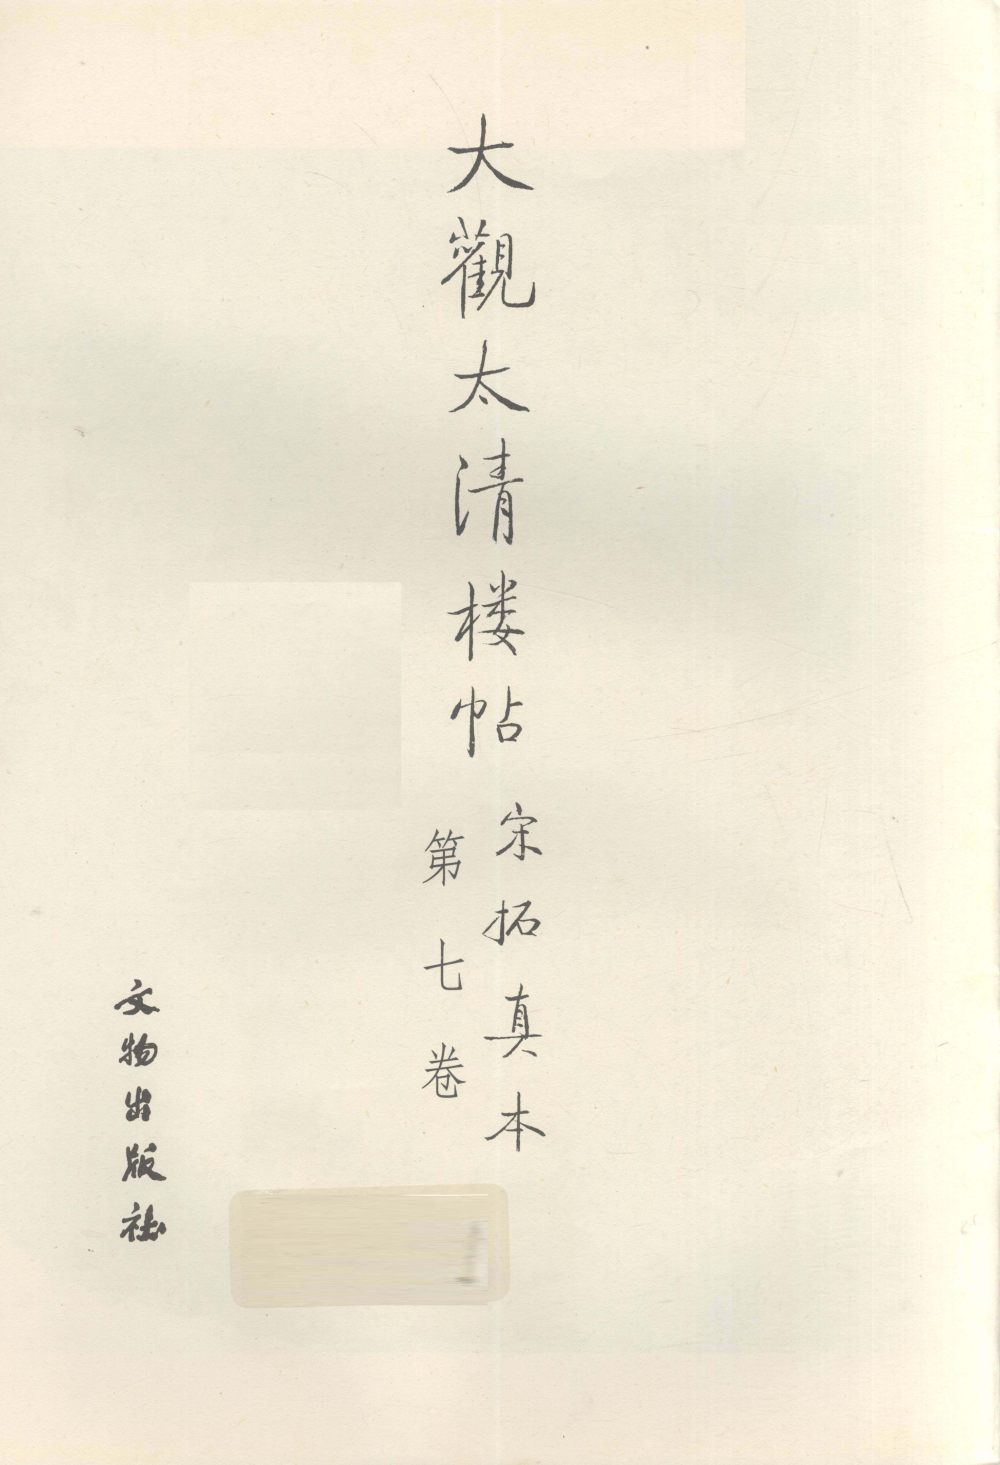 大觀太清楼帖
宋拓真本
第七卷
文物出版社